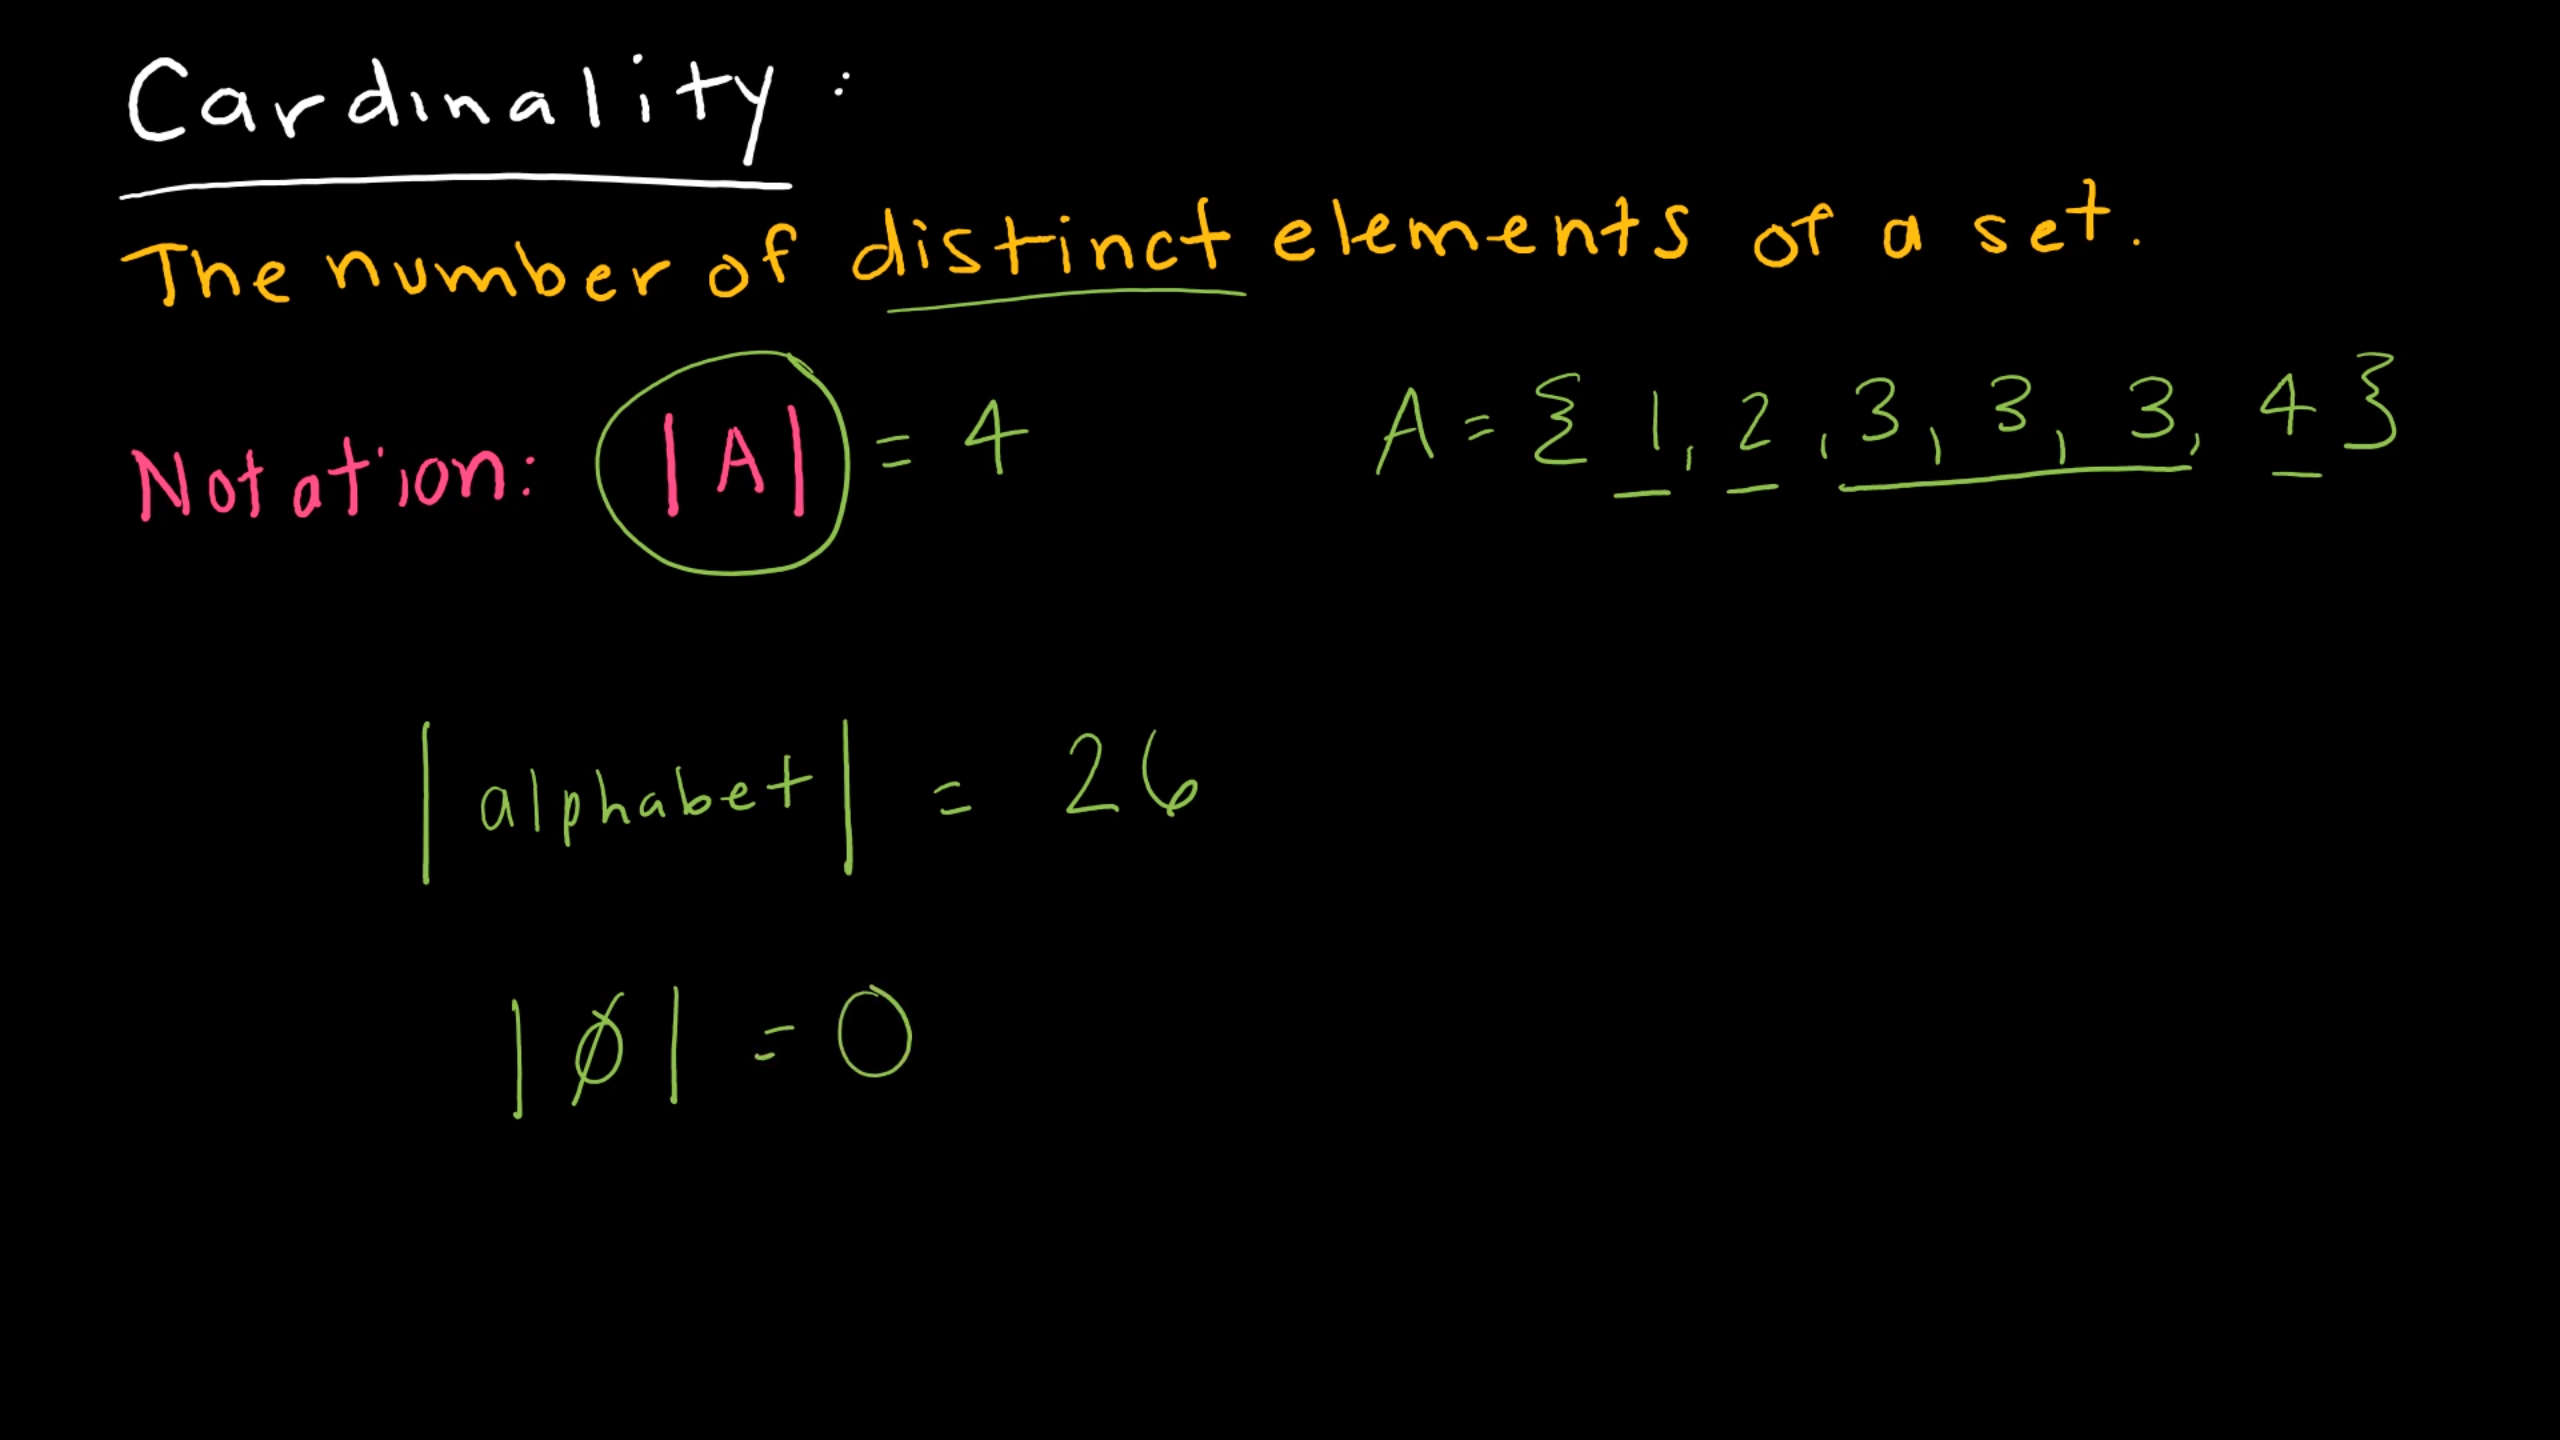 Cardinality:
The number of distinct elements of a set.
Notation: |A| = 4 A = { 1, 2, 3, 3, 3, 4 }
|alphabet| = 26
|∅| = 0